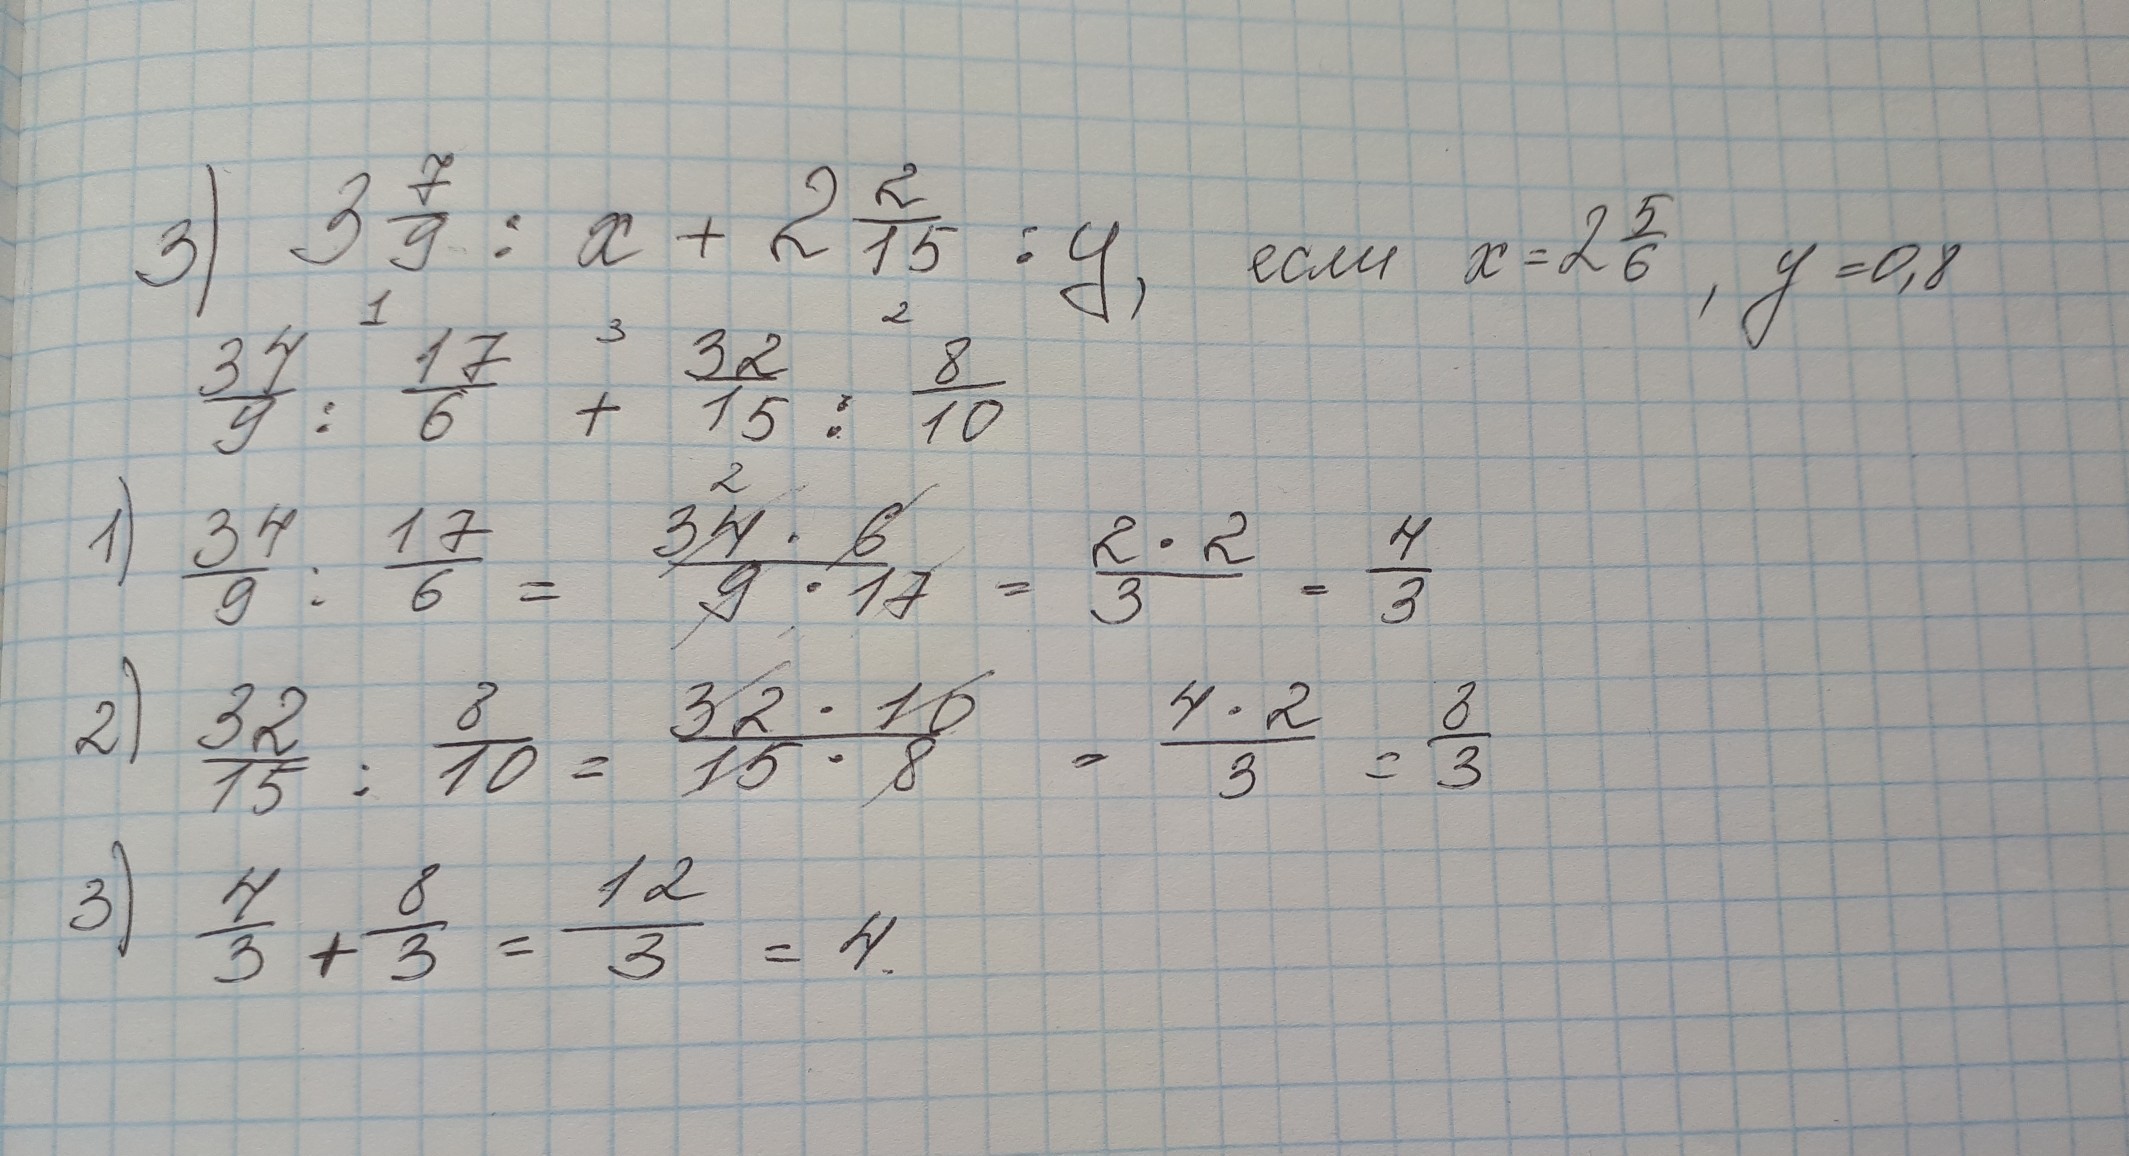 3) 3 7/9 : x + 2 2/15 : y, если x = 2 5/6, y = 0,8
1 3 2
34/9 : 17/6 + 32/15 : 8/10
2
1) 34/9 : 17/6 = 34 · 6 / 9 · 17 = 2 · 2 / 3 = 4/3
2) 32/15 : 8/10 = 32 · 10 / 15 · 8 = 4 · 2 / 3 = 8/3
3) 4/3 + 8/3 = 12/3 = 4.